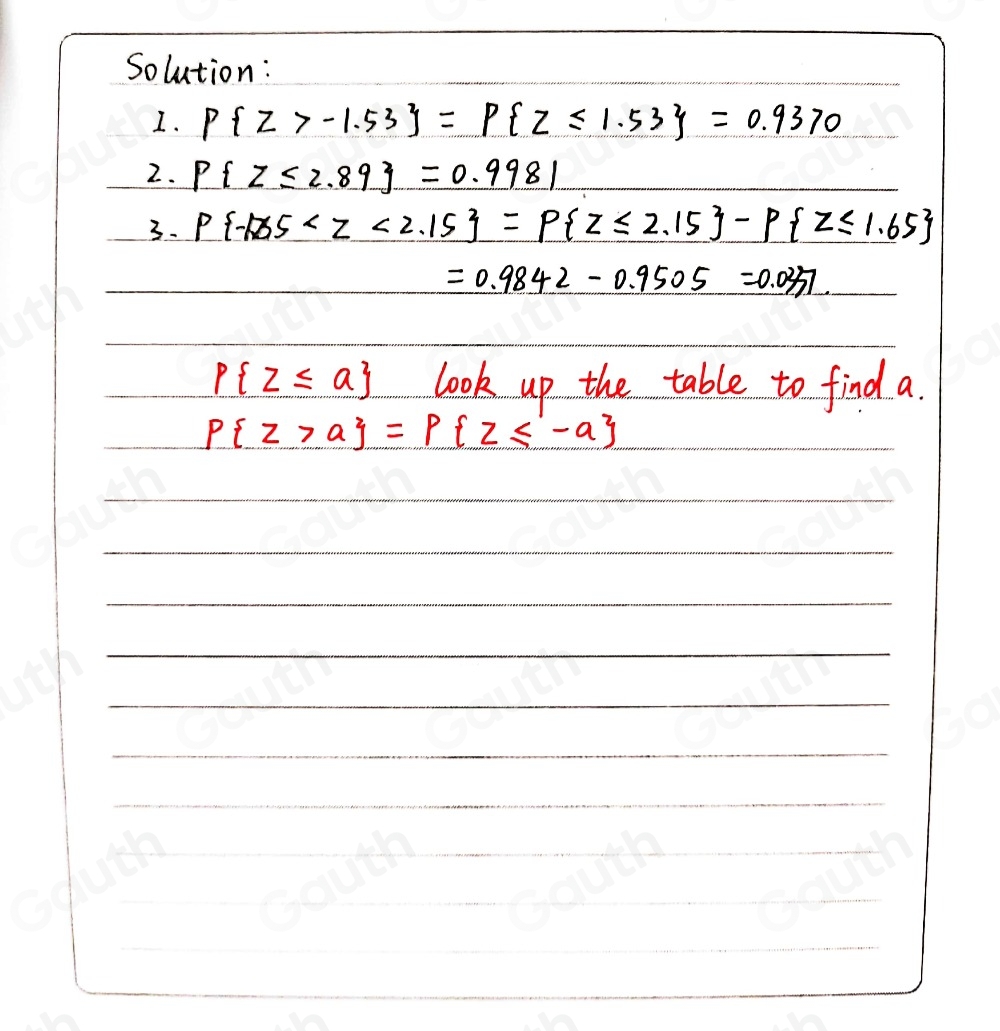 Solution:
1. P{Z > -1.53} = P{Z ≤ 1.53} = 0.9370
2. P{Z ≤ 2.89} = 0.9981
3. P{ < Z < 2.15} = P{Z ≤ 2.15} - P{Z ≤ 1.65}
= 0.9842 - 0.9505 =
P{Z ≤ a} look up the table to find a.
P{Z > a} = P{Z ≤ -a}
Gauth